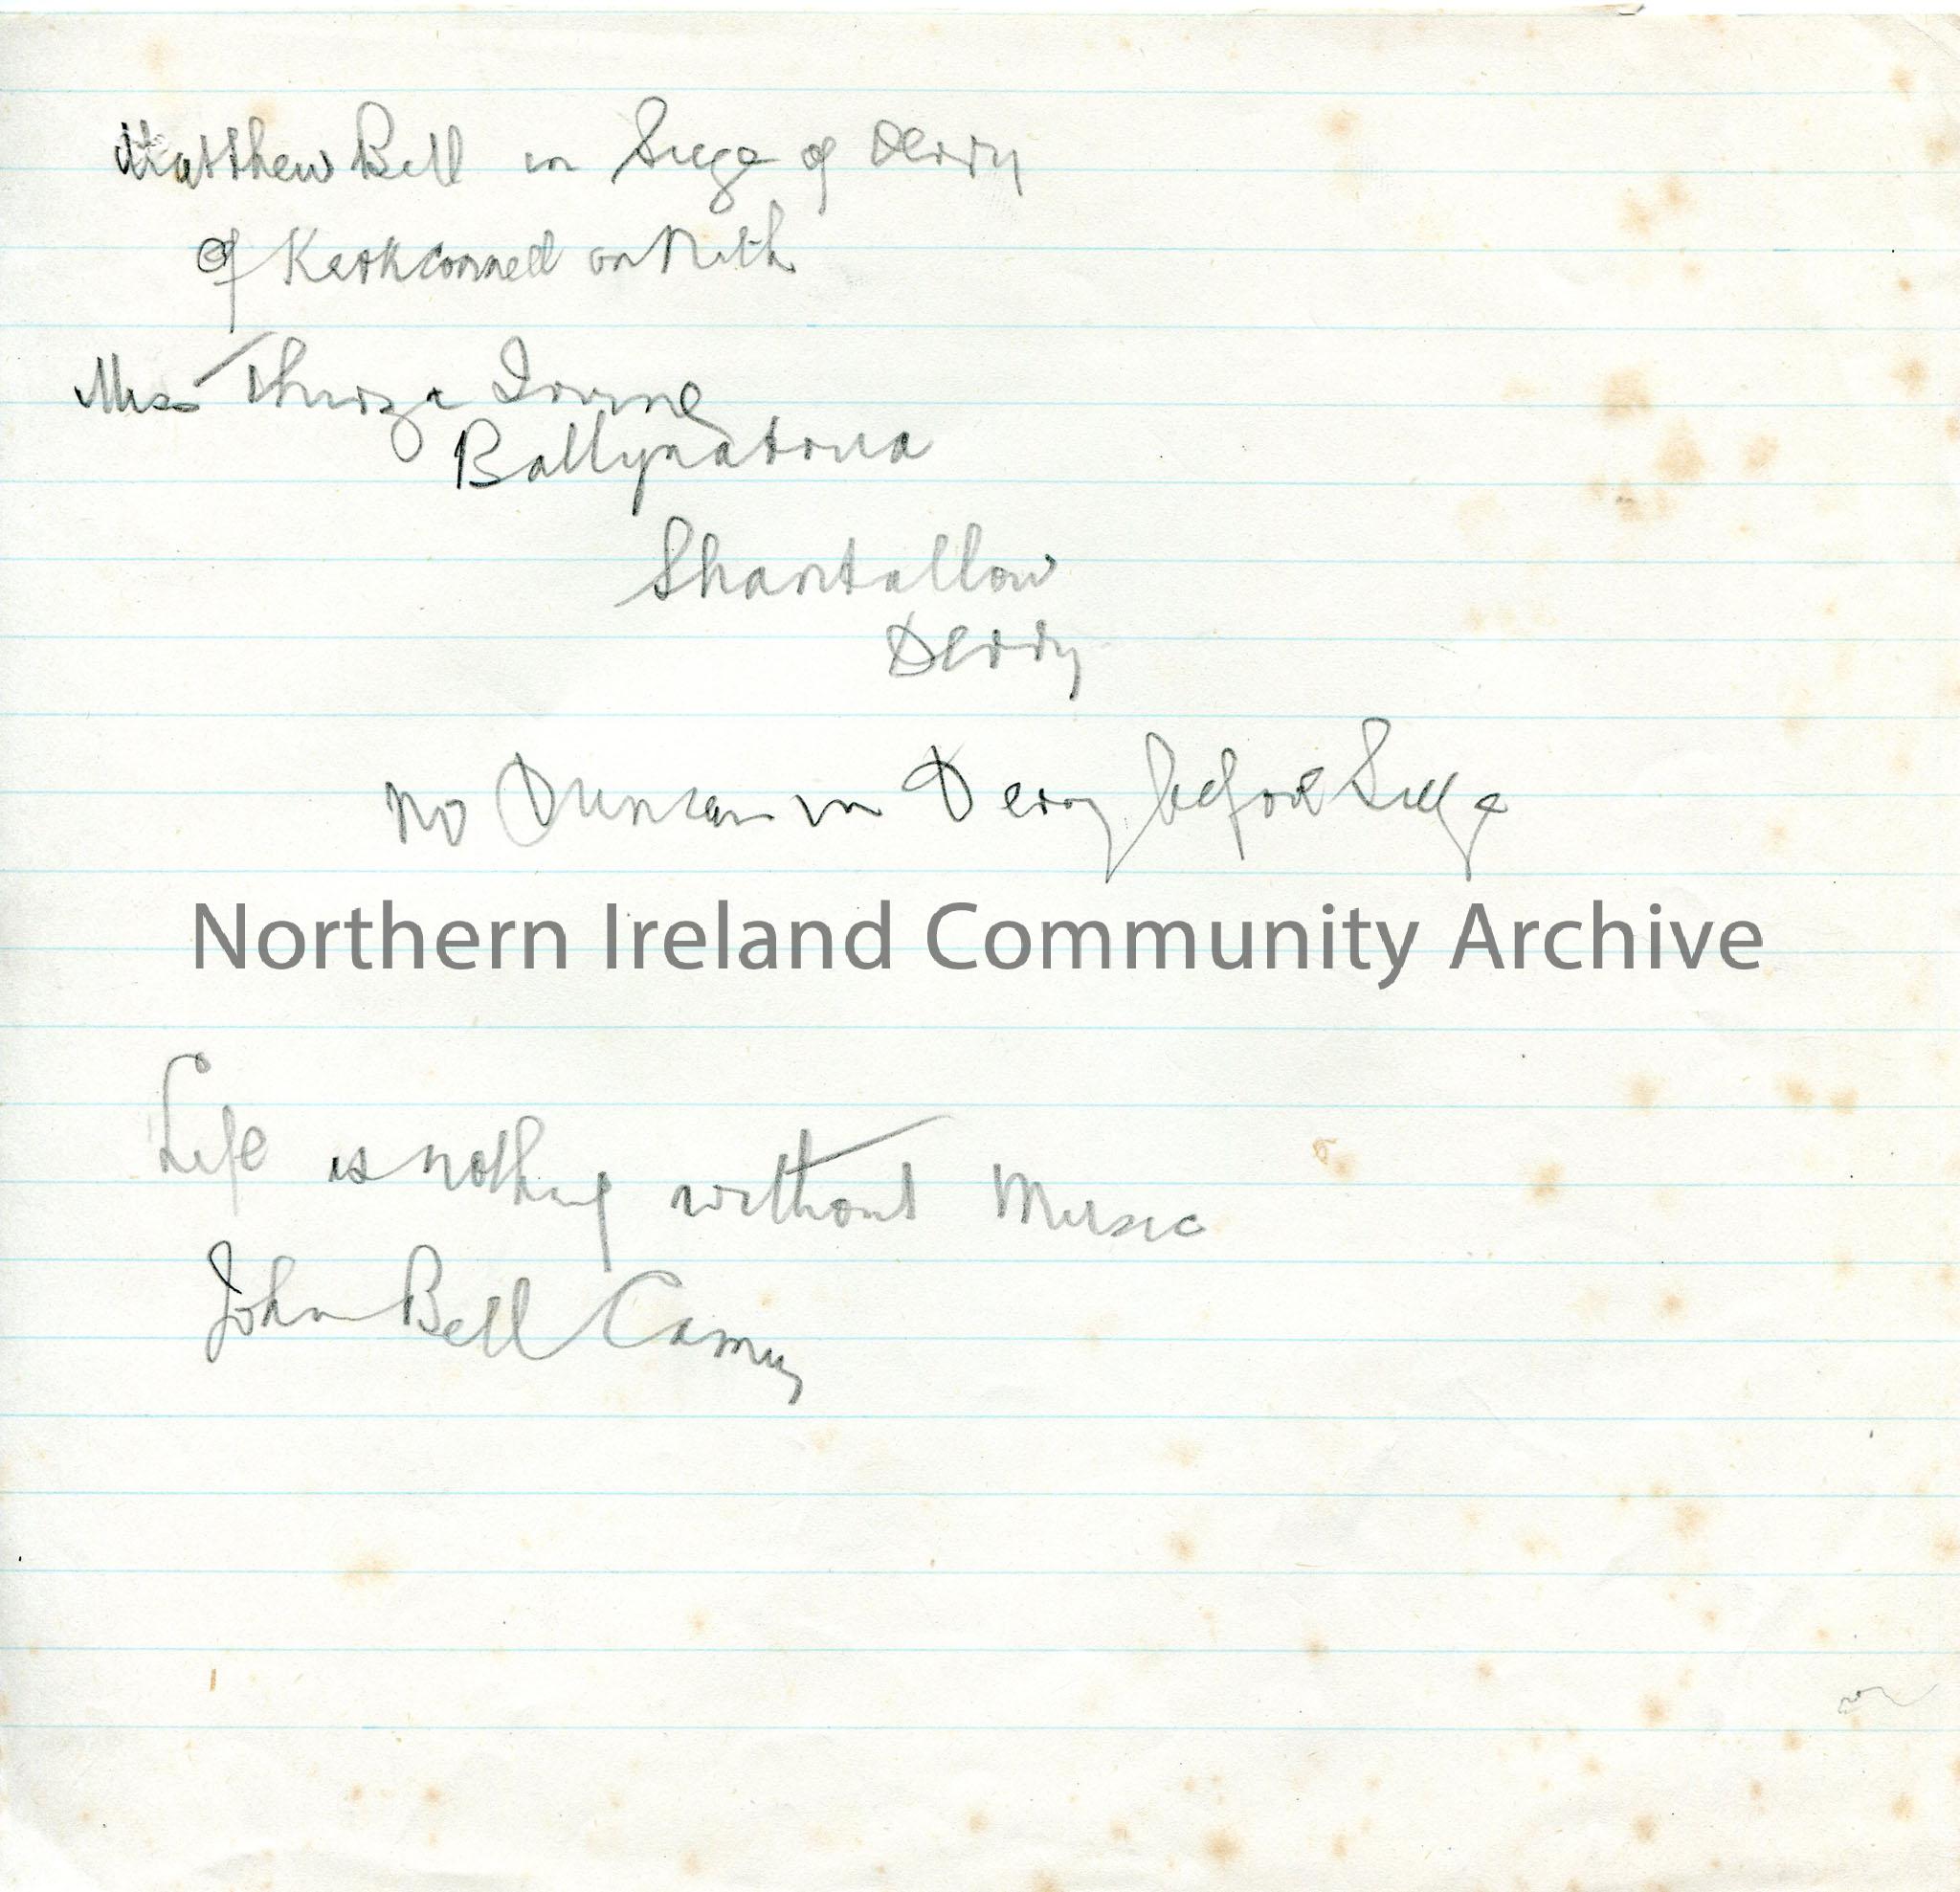 Matthew Bell in Siege of Derry
of Kirkconnell on Nith
Miss Thirza Irvine
Shantallow
Derry
No Duncan in Derry before Siege
Northern Ireland Community Archive
Life is nothing without Music
John Bell